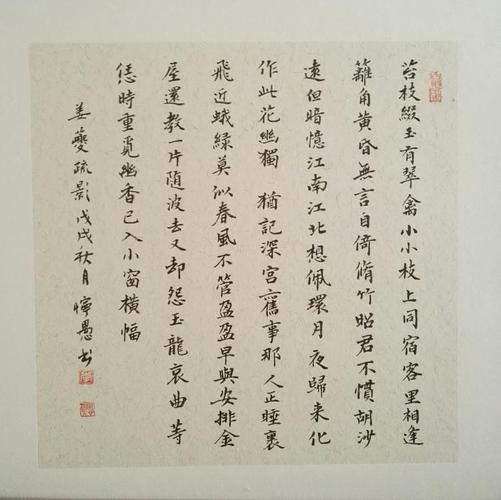 苔枝綴玉有翠禽小小枝上同宿客里相逢
籬角黄昏無言自倚脩竹昭君不慣胡沙
遠但暗憶江南江北想佩環月夜歸来化
作此花幽獨 猶記深宫舊事那人正睡裏
飛近蛾緑莫似春風不管盈盈早與安排金
屋還教一片随波去又却怨玉龍哀曲 等
恁時重覓幽香已入小窗横幅
姜夔疏影戊戌秋月愚书